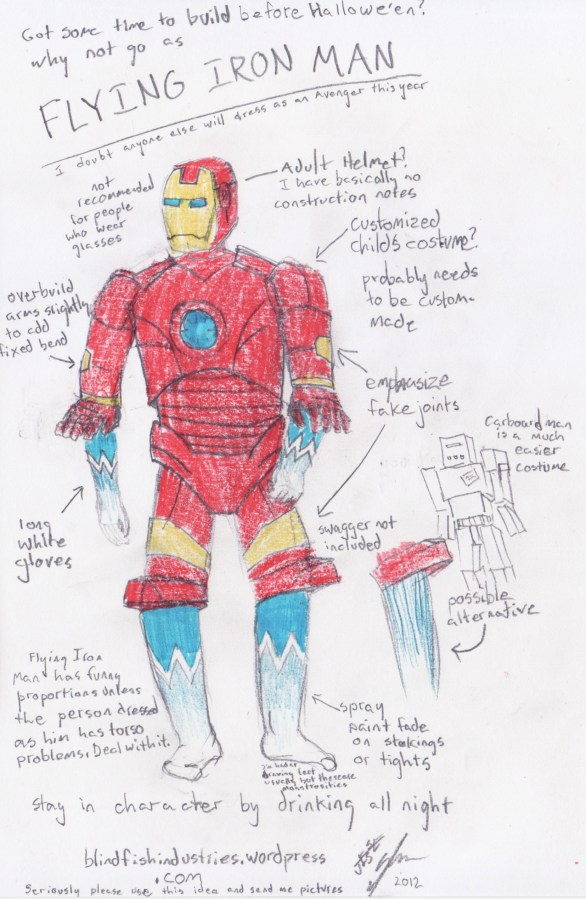 Got some time to build before Hallowe'en?
why not go as
FLYING IRON MAN
I doubt anyone else will dress as an Avenger this year
not
recommended
for people
who wear
glasses
Adult Helmet?
I have basically no
construction notes
customized
child's costume?
probably needs
to be custom-
made
overbuild
arms slightly
to add
fixed bend
emphasize
fake joints
Carboard man
is a much
easier
costume
long
white
gloves
swagger not
included
possible
alternative
Flying Iron
Man has funny
proportions unless
the person dressed
as him has torso
problems. Deal with it.
spray
paint fade
on stokings
or tights
drawing feet
usually but these are
monstrosities
stay in character by drinking all night
blindfishindustries.wordpress
.com
Seriously please use this idea and send me pictures
2012